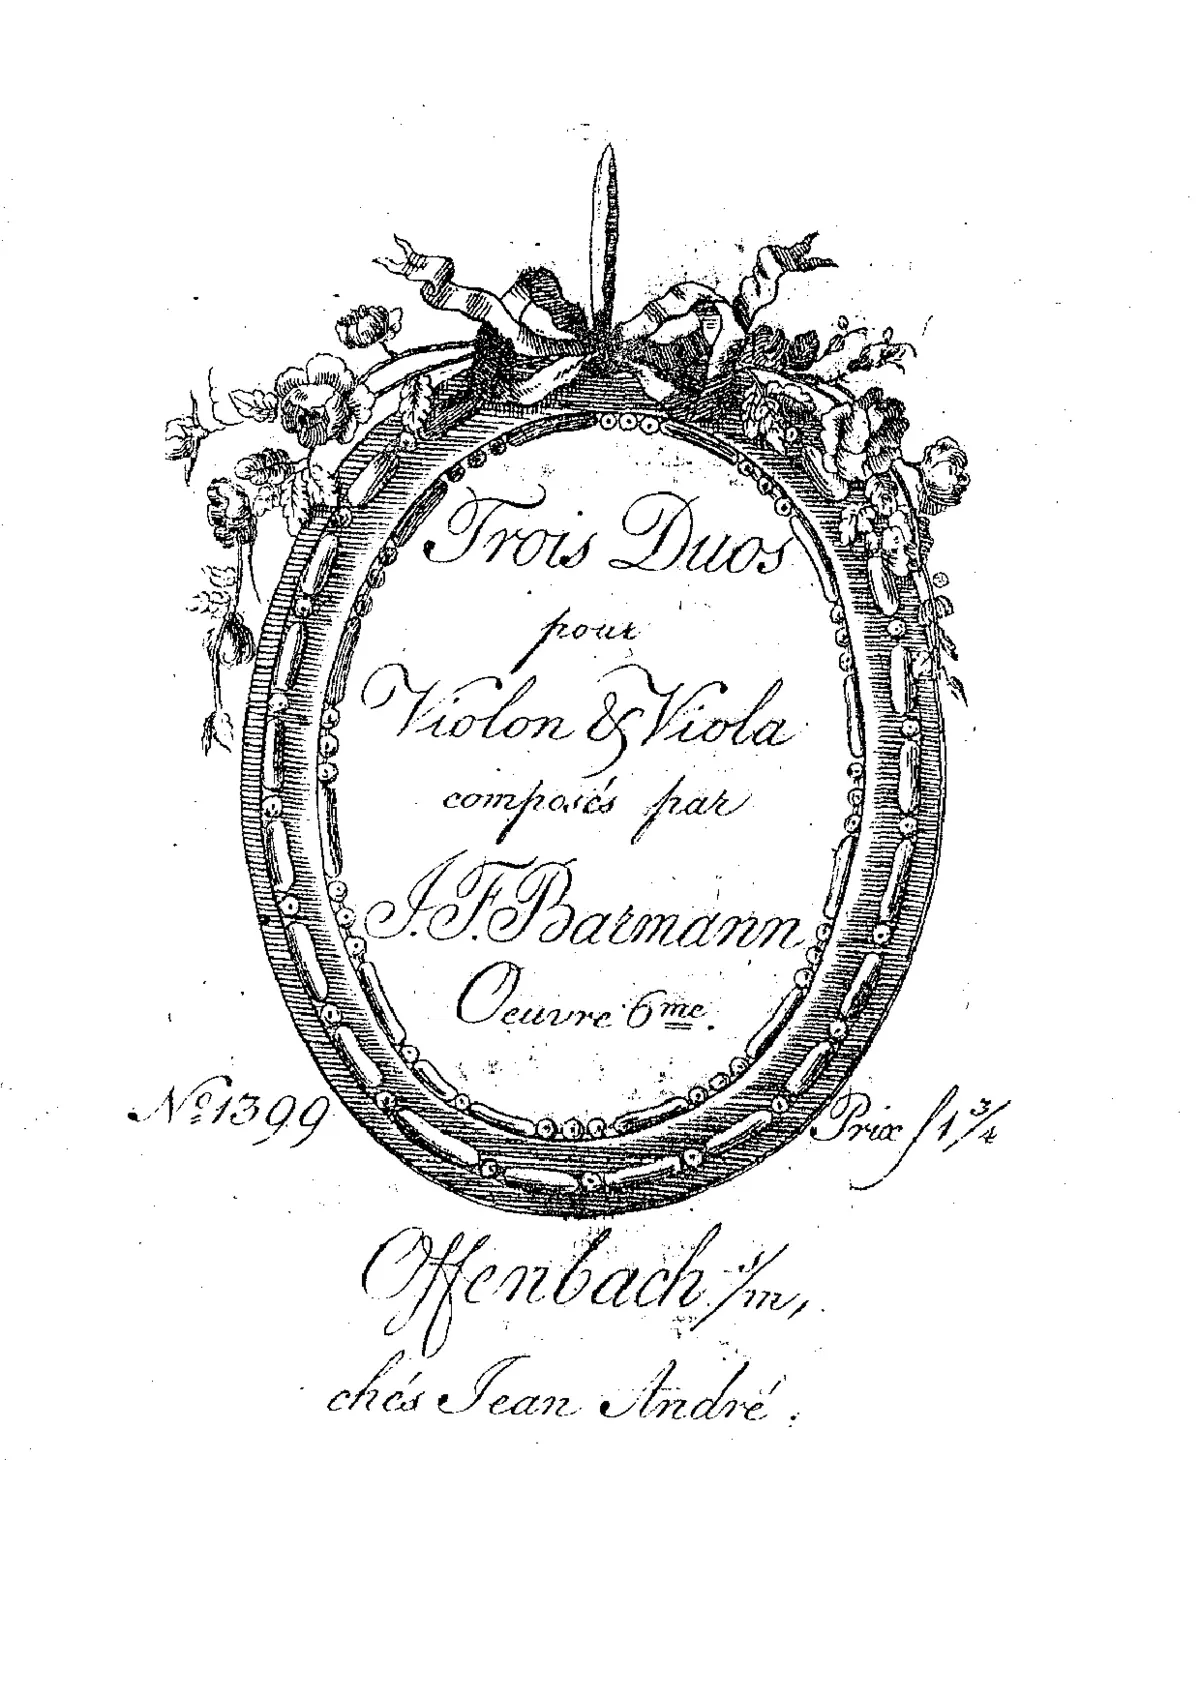 Trois Duos
pour
Violon & Viola
composés par
J. F. Barmann
Oeuvre 6me.
No 1399
Prix f 1 3/4
Offenbach s/m,
chés Jean André.